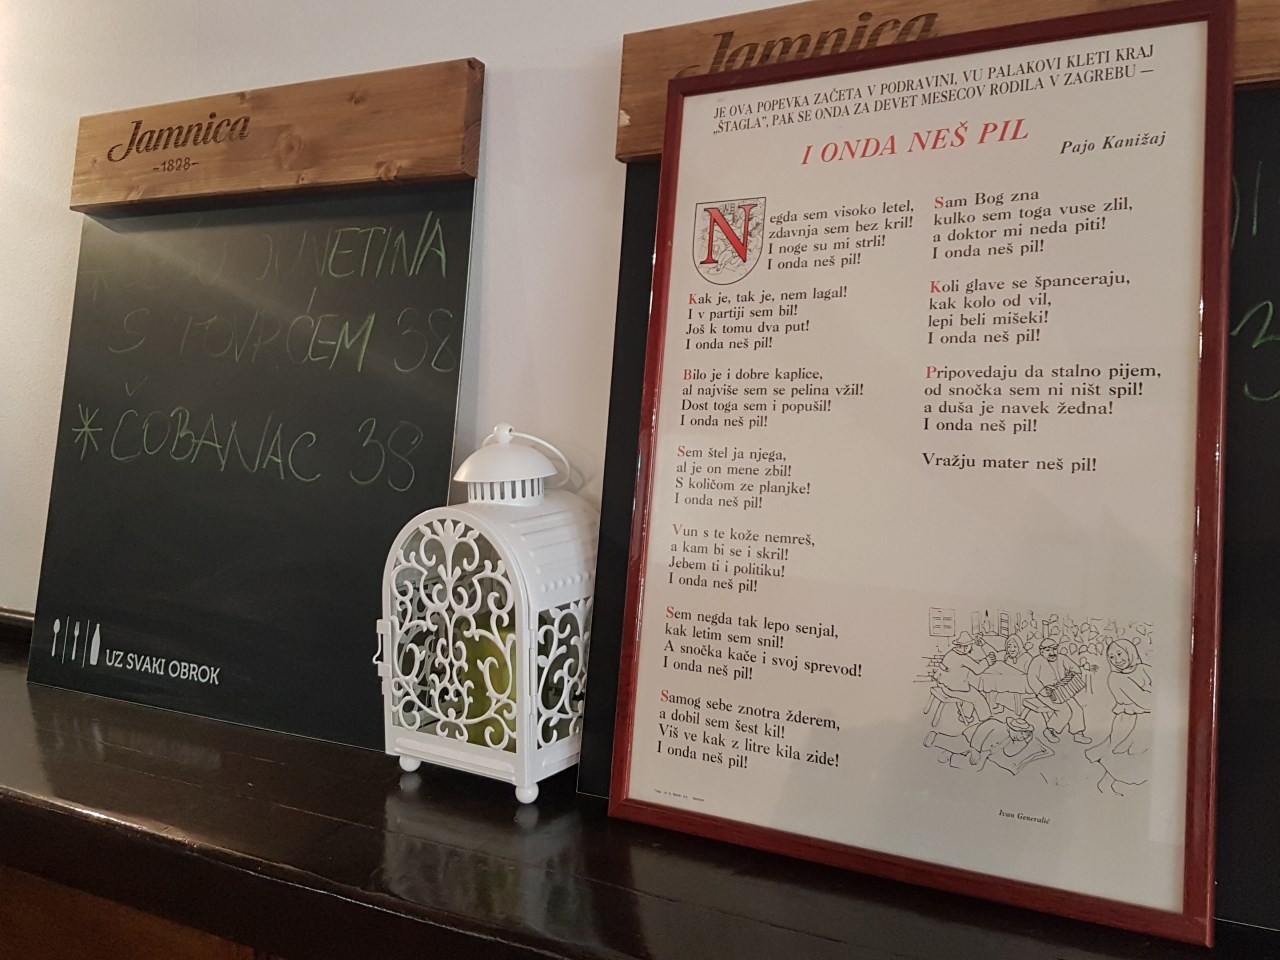 Jamnica
-1828-
S POVRĆEM 38
* ČOBANAC 38
UZ SVAKI OBROK
Jamnica
JE OVA POPEVKA ZAČETA V PODRAVINI, VU PALAKOVI KLETI KRAJ
„ŠTAGLA”, PAK SE ONDA ZA DEVET MESECOV RODILA V ZAGREBU —
I ONDA NEŠ PIL
Pajo Kanižaj
Negda sem visoko letel,
zdavnja sem bez kril!
I noge su mi strli!
I onda neš pil!
Kak je, tak je, nem lagal!
I v partiji sem bil!
Još k tomu dva put!
I onda neš pil!
Bilo je i dobre kaplice,
al najviše sem se pelina vžil!
Dost toga sem i popušil!
I onda neš pil!
Sem štel ja njega,
al je on mene zbil!
S količom ze planjke!
I onda neš pil!
Vun s te kože nemreš,
a kam bi se i skril!
Jebem ti i politiku!
I onda neš pil!
Sem negda tak lepo senjal,
kak letim sem snil!
A snočka kače i svoj sprevod!
I onda neš pil!
Samog sebe znotra žderem,
a dobil sem šest kil!
Viš ve kak z litre kila zide!
I onda neš pil!
Sam Bog zna
kulko sem toga vuse zlil,
a doktor mi neda piti!
I onda neš pil!
Koli glave se španceraju,
kak kolo od vil,
lepi beli mišeki!
I onda neš pil!
Pripovedaju da stalno pijem,
od snočka sem ni ništ spil!
a duša je navek žedna!
I onda neš pil!
Vražju mater neš pil!
Ivan Generalić